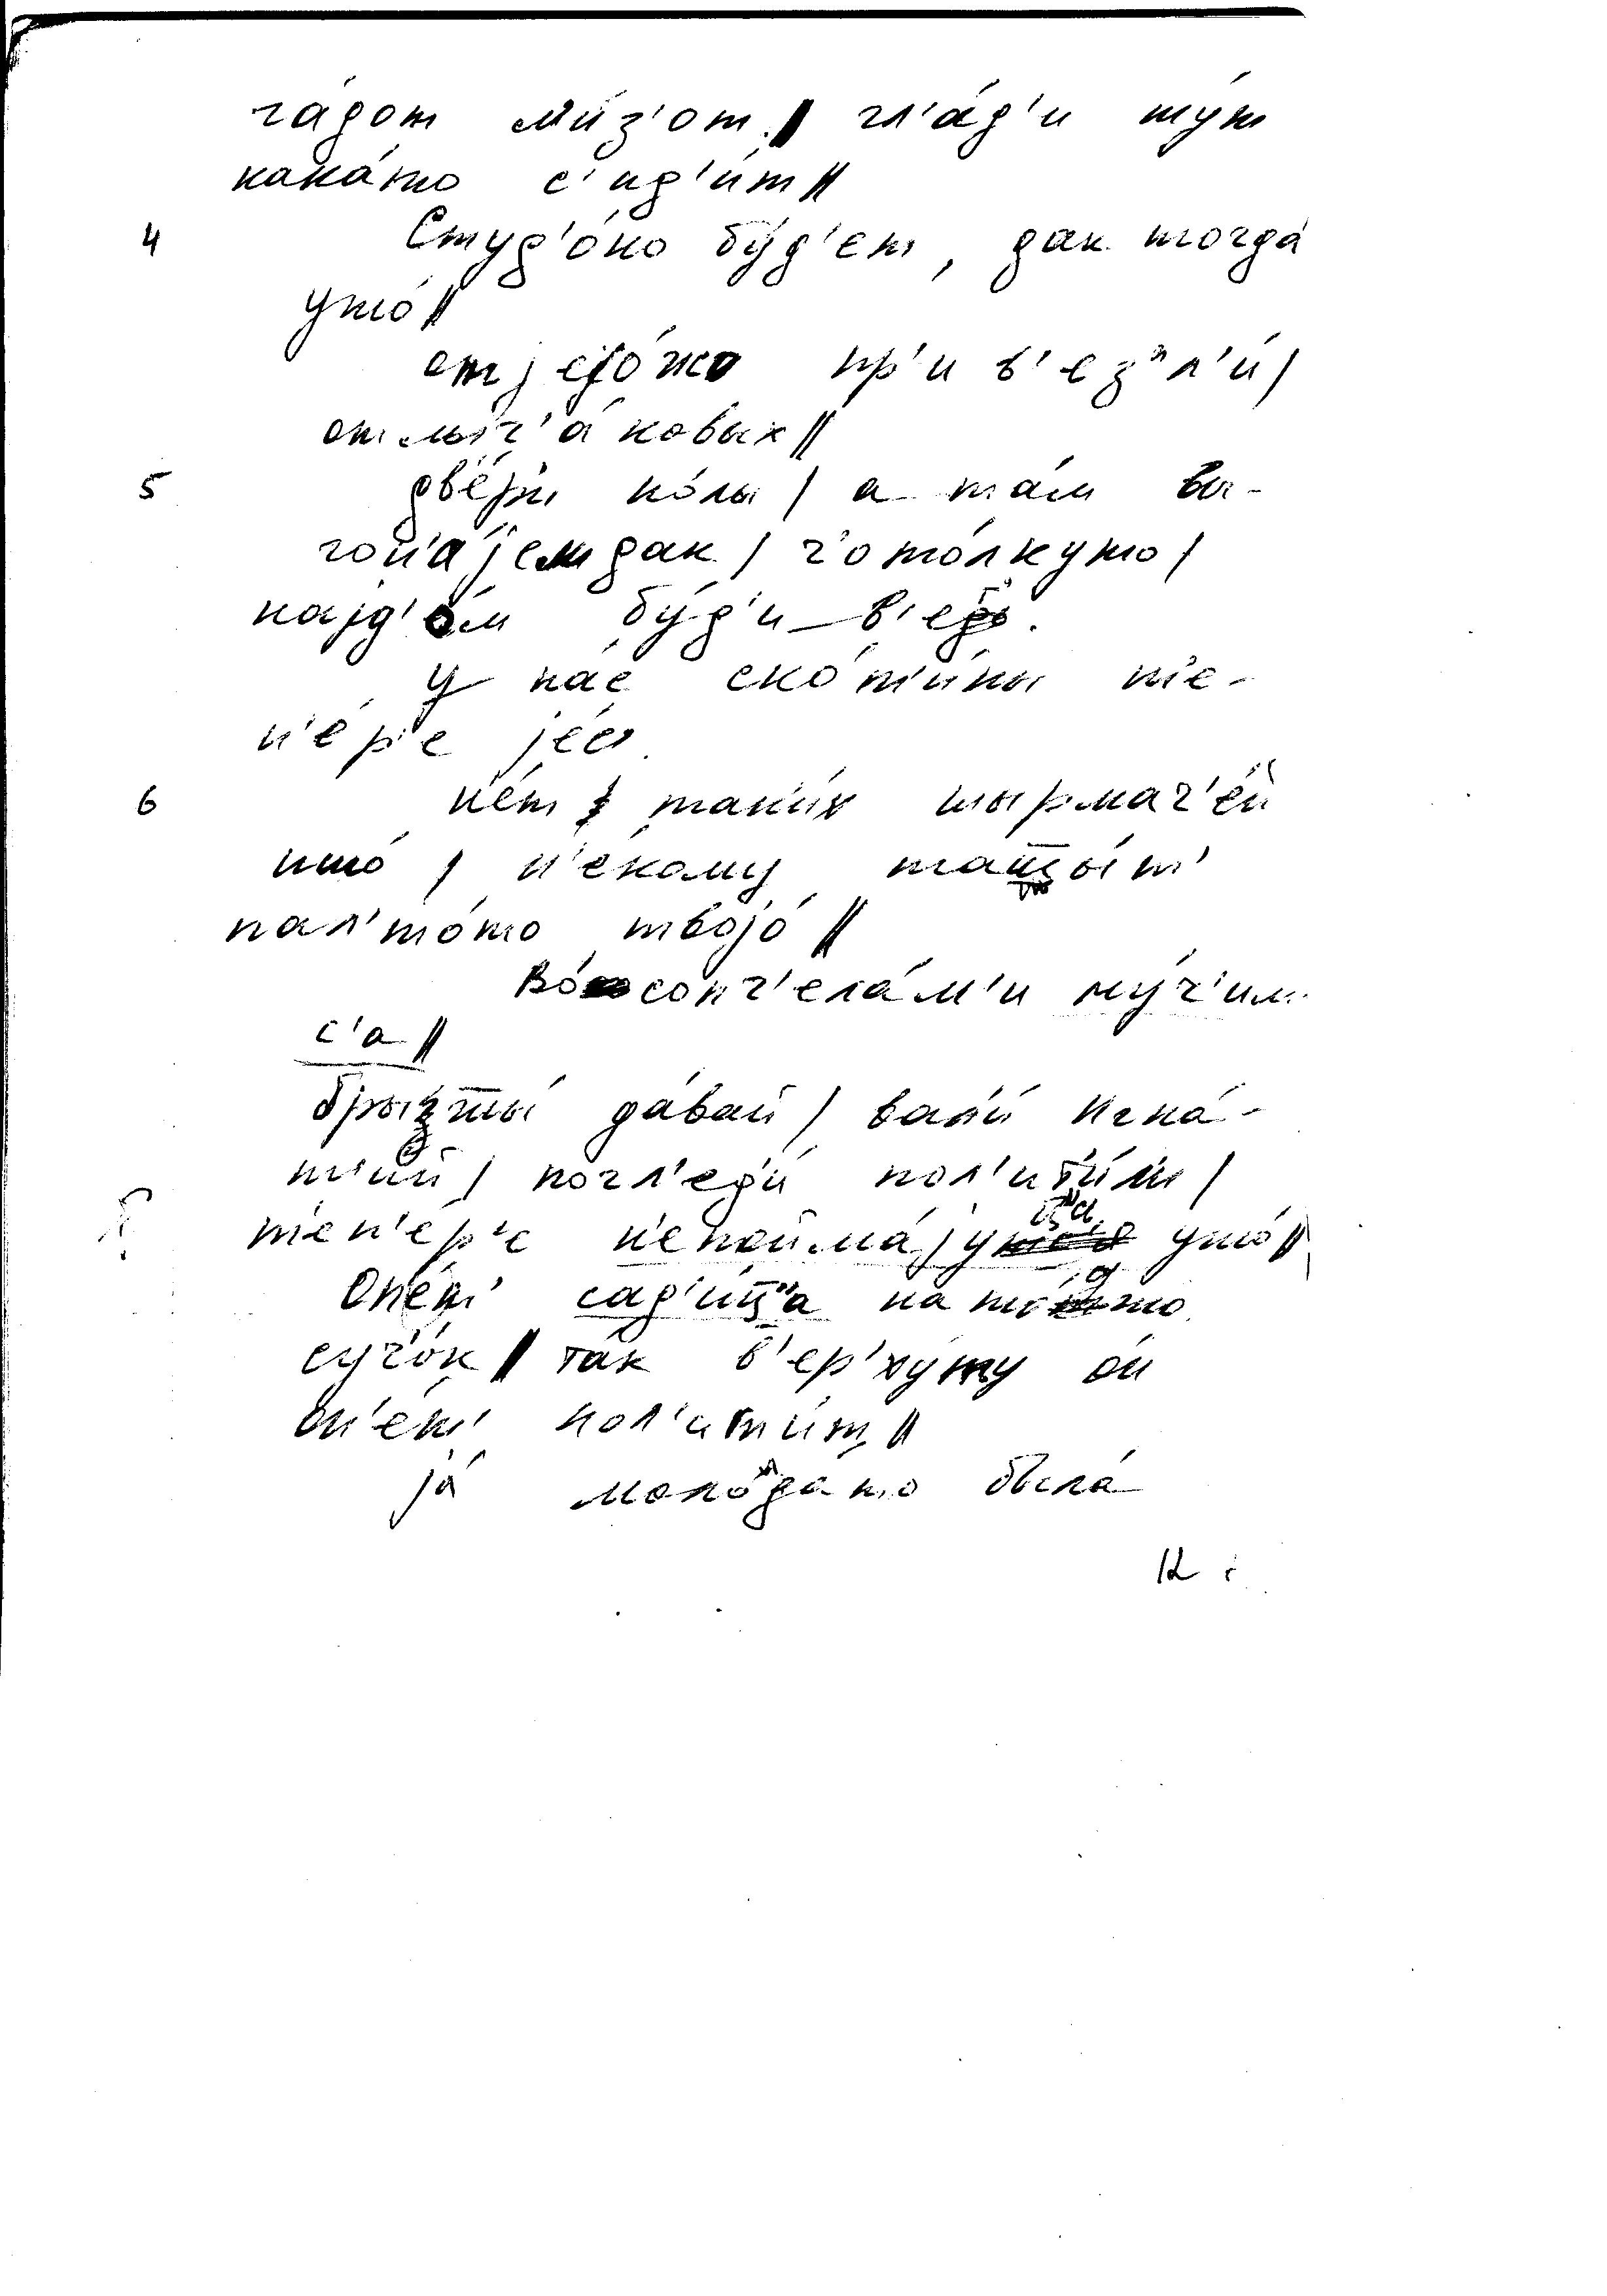 га́дот ми́з'от.‖ гл'а́д'и ту́т
кака́то с'ид'и́т‖
4 Студ'о́но бу́д'ет, дак тогда́
уто́‖
от јего́жо пр'ив'езл'и́ |
отмыч'а́ковых‖
5 две́р'и по́лы | а та́м вы-
гон'а́јем дак | ч'о то́лкуто |
најд'о́м бу́д'и_в'едь.
у на́с ско́т'ины т'е-
п'е́р'е је́с'
6 не́т таки́х тырмач'е́й
што́ | н'е́кому тащы́т'
пал'то́то твојо́‖
Во́сопч'ела́м'и му́ч'им
с'а‖
брызгы́ дава́й | вани́ Игна́-
т'ий | погл'еди́ пол'ити́м |
теп'е́р'е непоима́јуца уто́‖
Опе́т' сад'и́ца на то́гто
суч'о́к‖ та́к в'ер'ху́ту о́н
оп'е́т' пол'ити́т‖
ја́ моло́дато была́